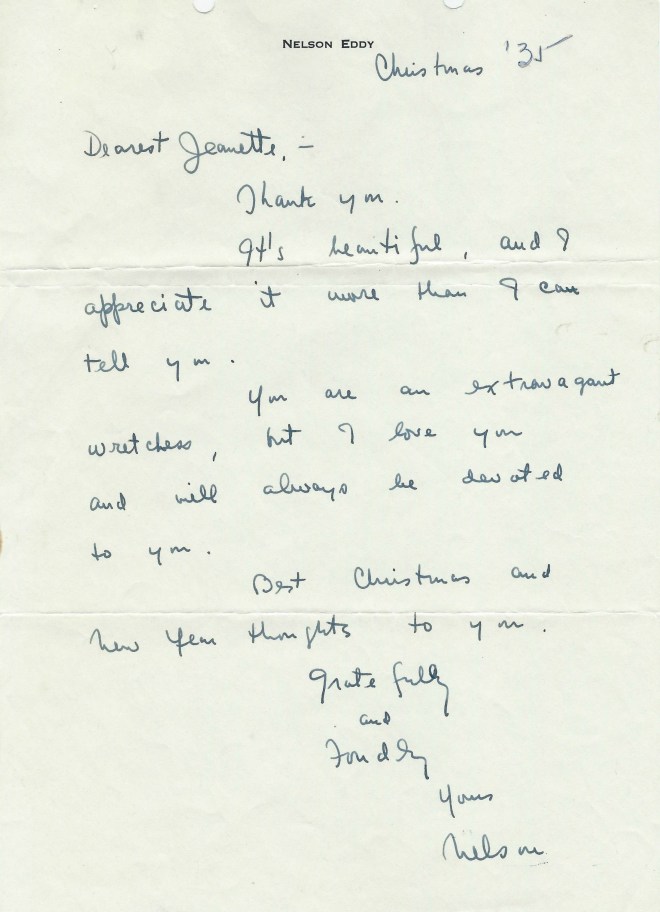 NELSON EDDY
Christmas '35
Dearest Jeanette, –
Thank you.
It's beautiful, and I
appreciate it more than I can
tell you.
You are an extravagant
wretchess, but I love you
and will always be devoted
to you.
Best Christmas and
New Year thoughts to you.
Gratefully
and
Fondly
Yours
Nelson